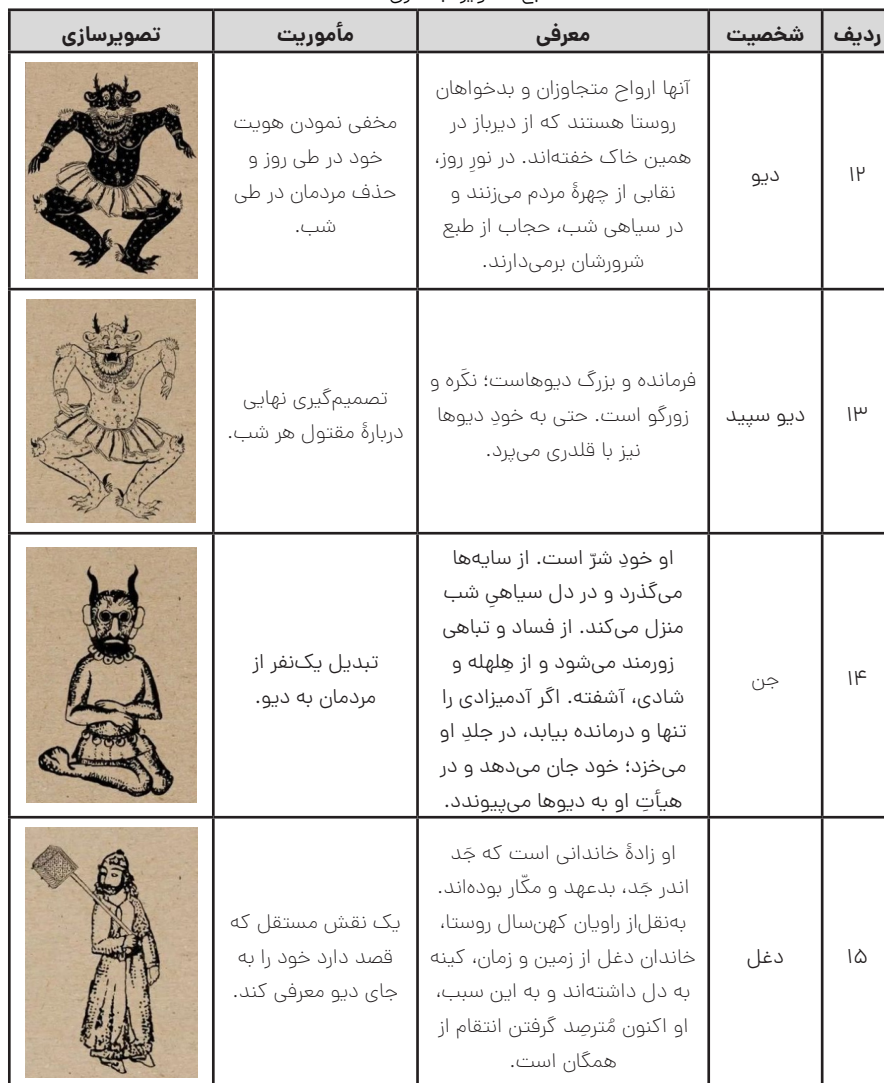 ردیف شخصیت معرفی مأموریت تصویرسازی
۱۲
دیو
آنها ارواح متجاوزان و بدخواهان
روستا هستند که از دیرباز در
همین خاک خفته‌اند. در نورِ روز،
نقابی از چهرهٔ مردم می‌زنند و
در سیاهی شب، حجاب از طبع
شرورشان برمی‌دارند.
مخفی نمودن هویت
خود در طی روز و
حذف مردمان در طی
شب.
۱۳
دیو سپید
فرمانده و بزرگ دیوهاست؛ نکَره و
زورگو است. حتی به خودِ دیوها
نیز با قلدری می‌پرد.
تصمیم‌گیری نهایی
دربارهٔ مقتول هر شب.
۱۴
جن
او خودِ شرّ است. از سایه‌ها
می‌گذرد و در دل سیاهیِ شب
منزل می‌کند. از فساد و تباهی
زورمند می‌شود و از هِلهله و
شادی، آشفته. اگر آدمیزادی را
تنها و درمانده بیابد، در جلدِ او
می‌خزد؛ خود جان می‌دهد و در
هیأتِ او به دیوها می‌پیوندد.
تبدیل یک‌نفر از
مردمان به دیو.
۱۵
دغل
او زادهٔ خاندانی است که جَد
اندر جَد، بدعهد و مکّار بوده‌اند.
به‌نقل‌از راویان کهن‌سال روستا،
خاندان دغل از زمین و زمان، کینه
به دل داشته‌اند و به این سبب،
او اکنون مُترصِد گرفتن انتقام از
همگان است.
یک نقش مستقل که
قصد دارد خود را به
جای دیو معرفی کند.